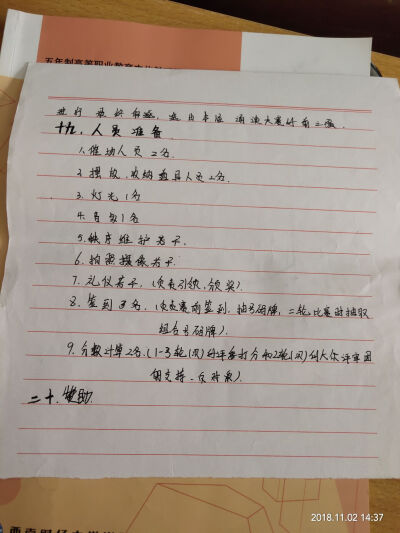 五年制高等职业教育
进行最终角逐,选出本届演讲大赛的前三强.
十九、人员准备
1.催场人员2名
2.摆放、收纳道具人员2名.
3.灯光1名
4.音乐1名
5.秩序维护若干.
6.拍照摄像若干.
7.礼仪若干,(负责引领,颁奖).
8.签到3名,(负责赛前签到,抽号码牌,二轮比赛时抽取
组合号码牌).
9.分数计算2名.(1-3轮(次)的评委打分和2轮(次)的大众评审团
的支持、反对票).
二十.赞助.
2018.11.02 14:37